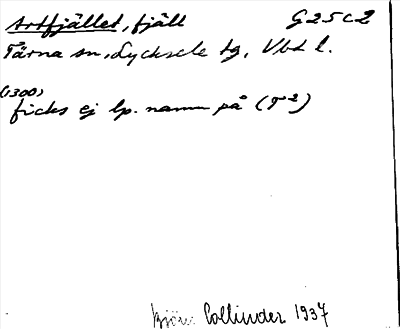 Artfjället, fjäll G25c2
Tärna sn, Lycksele tg, Vbt l.
(1300)
ficks ej lp. namn på (T²)
Björn Collinder 1937